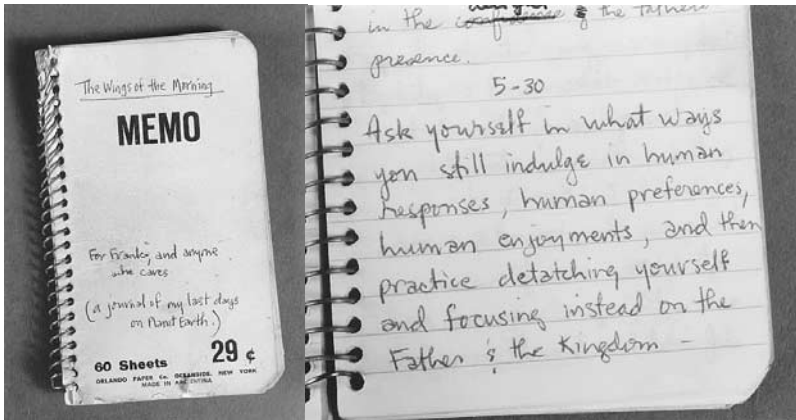 The Wings of the Morning
MEMO
For Franke, and anyone
who cares
(a journal of my last days
on Planet Earth.)
60 Sheets 29 ¢
ORLANDO PAPER Co. OCEANSIDE, NEW YORK
MADE IN ARGENTINA
in the & the fathers
presence.
5-30
Ask yourself in what ways
you still indulge in human
responses, human preferences,
human enjoyments, and then
practice detatching yourself
and focusing instead on the
Father & the Kingdom -